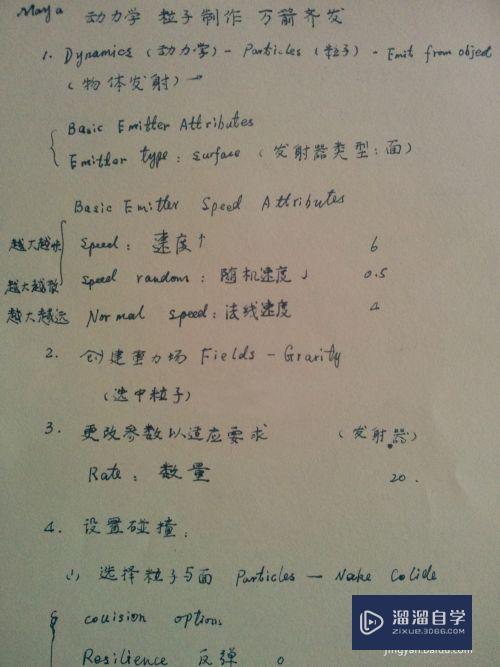 Maya 动力学 粒子制作 万箭齐发
1. Dynamics (动力学) - Particles (粒子) - Emit from object
(物体发射)
Basic Emitter Attributes
Emitter type: surface (发射器类型:面)
Basic Emitter Speed Attributes
越大越快 Speed: 速度↑ 6
越大越散 Speed random: 随机速度↓ 0.5
越大越远 Normal speed: 法线速度 4
2. 创建重力场 Fields - Grarity
(选中粒子)
3. 更改参数以适应要求 (发射器)
Rate: 数量 20.
4. 设置碰撞:
(1) 选择粒子与面 Particles — Nake Colide
couision options
Resilience 反弹 0
溜溜自学
ZIXUE.3D66.COM
jingyan.baidu.com